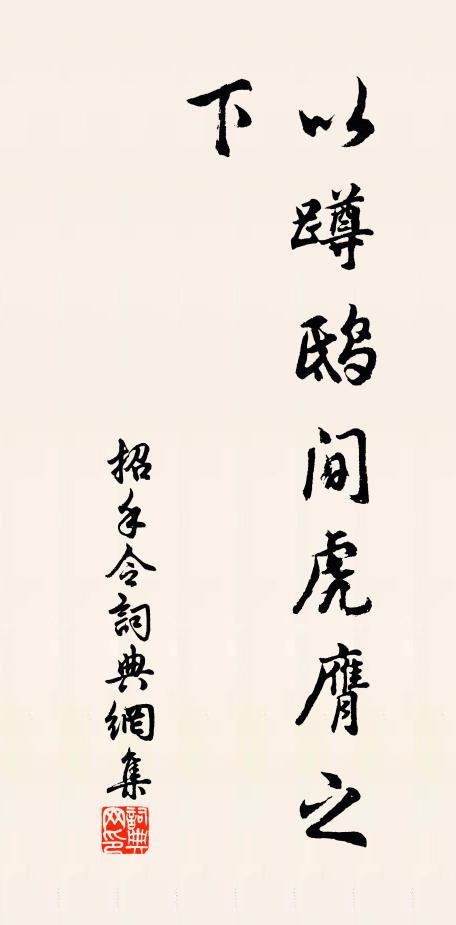 以蹲鸱间虎膺之
下
招手令詞典網集
詞典网印